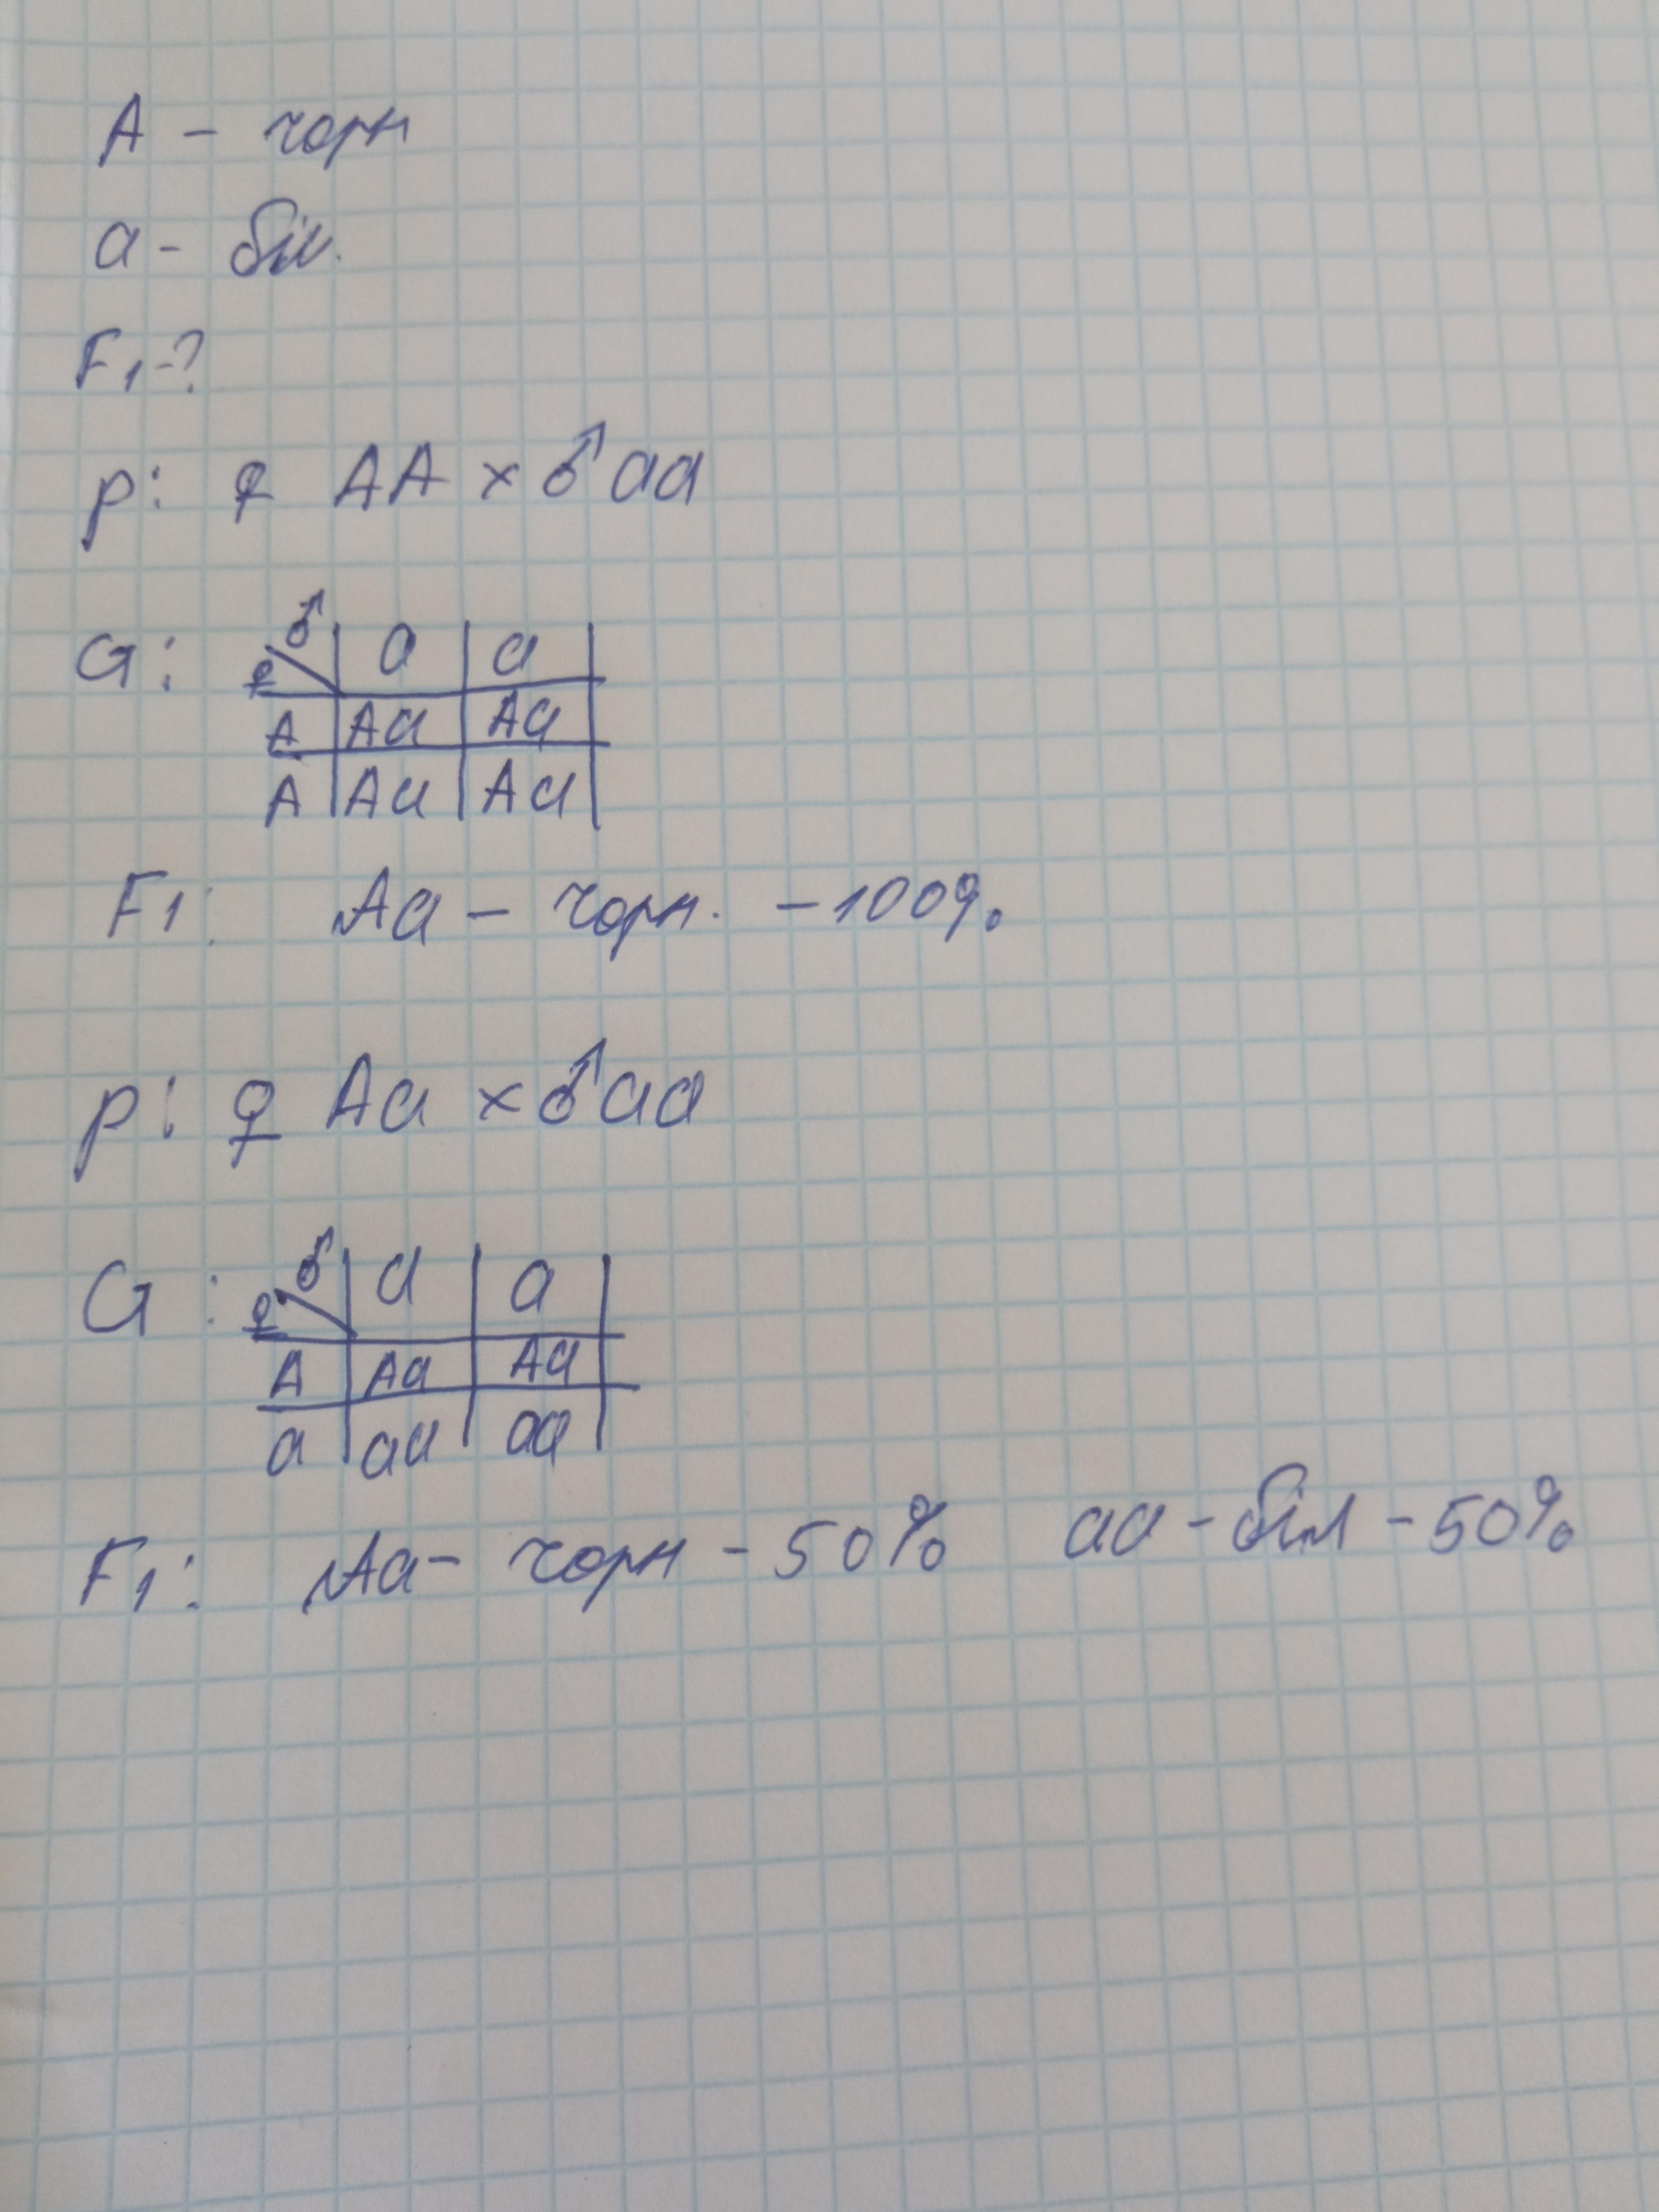 A - чорн
a - біл.
F1-?
P: ♀ AA × ♂ aa
G: ♀ \ ♂ | a | a |
A | Aa | Aa |
A | Aa | Aa |
F1: Aa - чорн. - 100%
P: ♀ Aa × ♂ aa
G: ♀ \ ♂ | a | a |
A | Aa | Aa |
a | aa | aa |
F1: Aa - чорн - 50% aa - біл - 50%